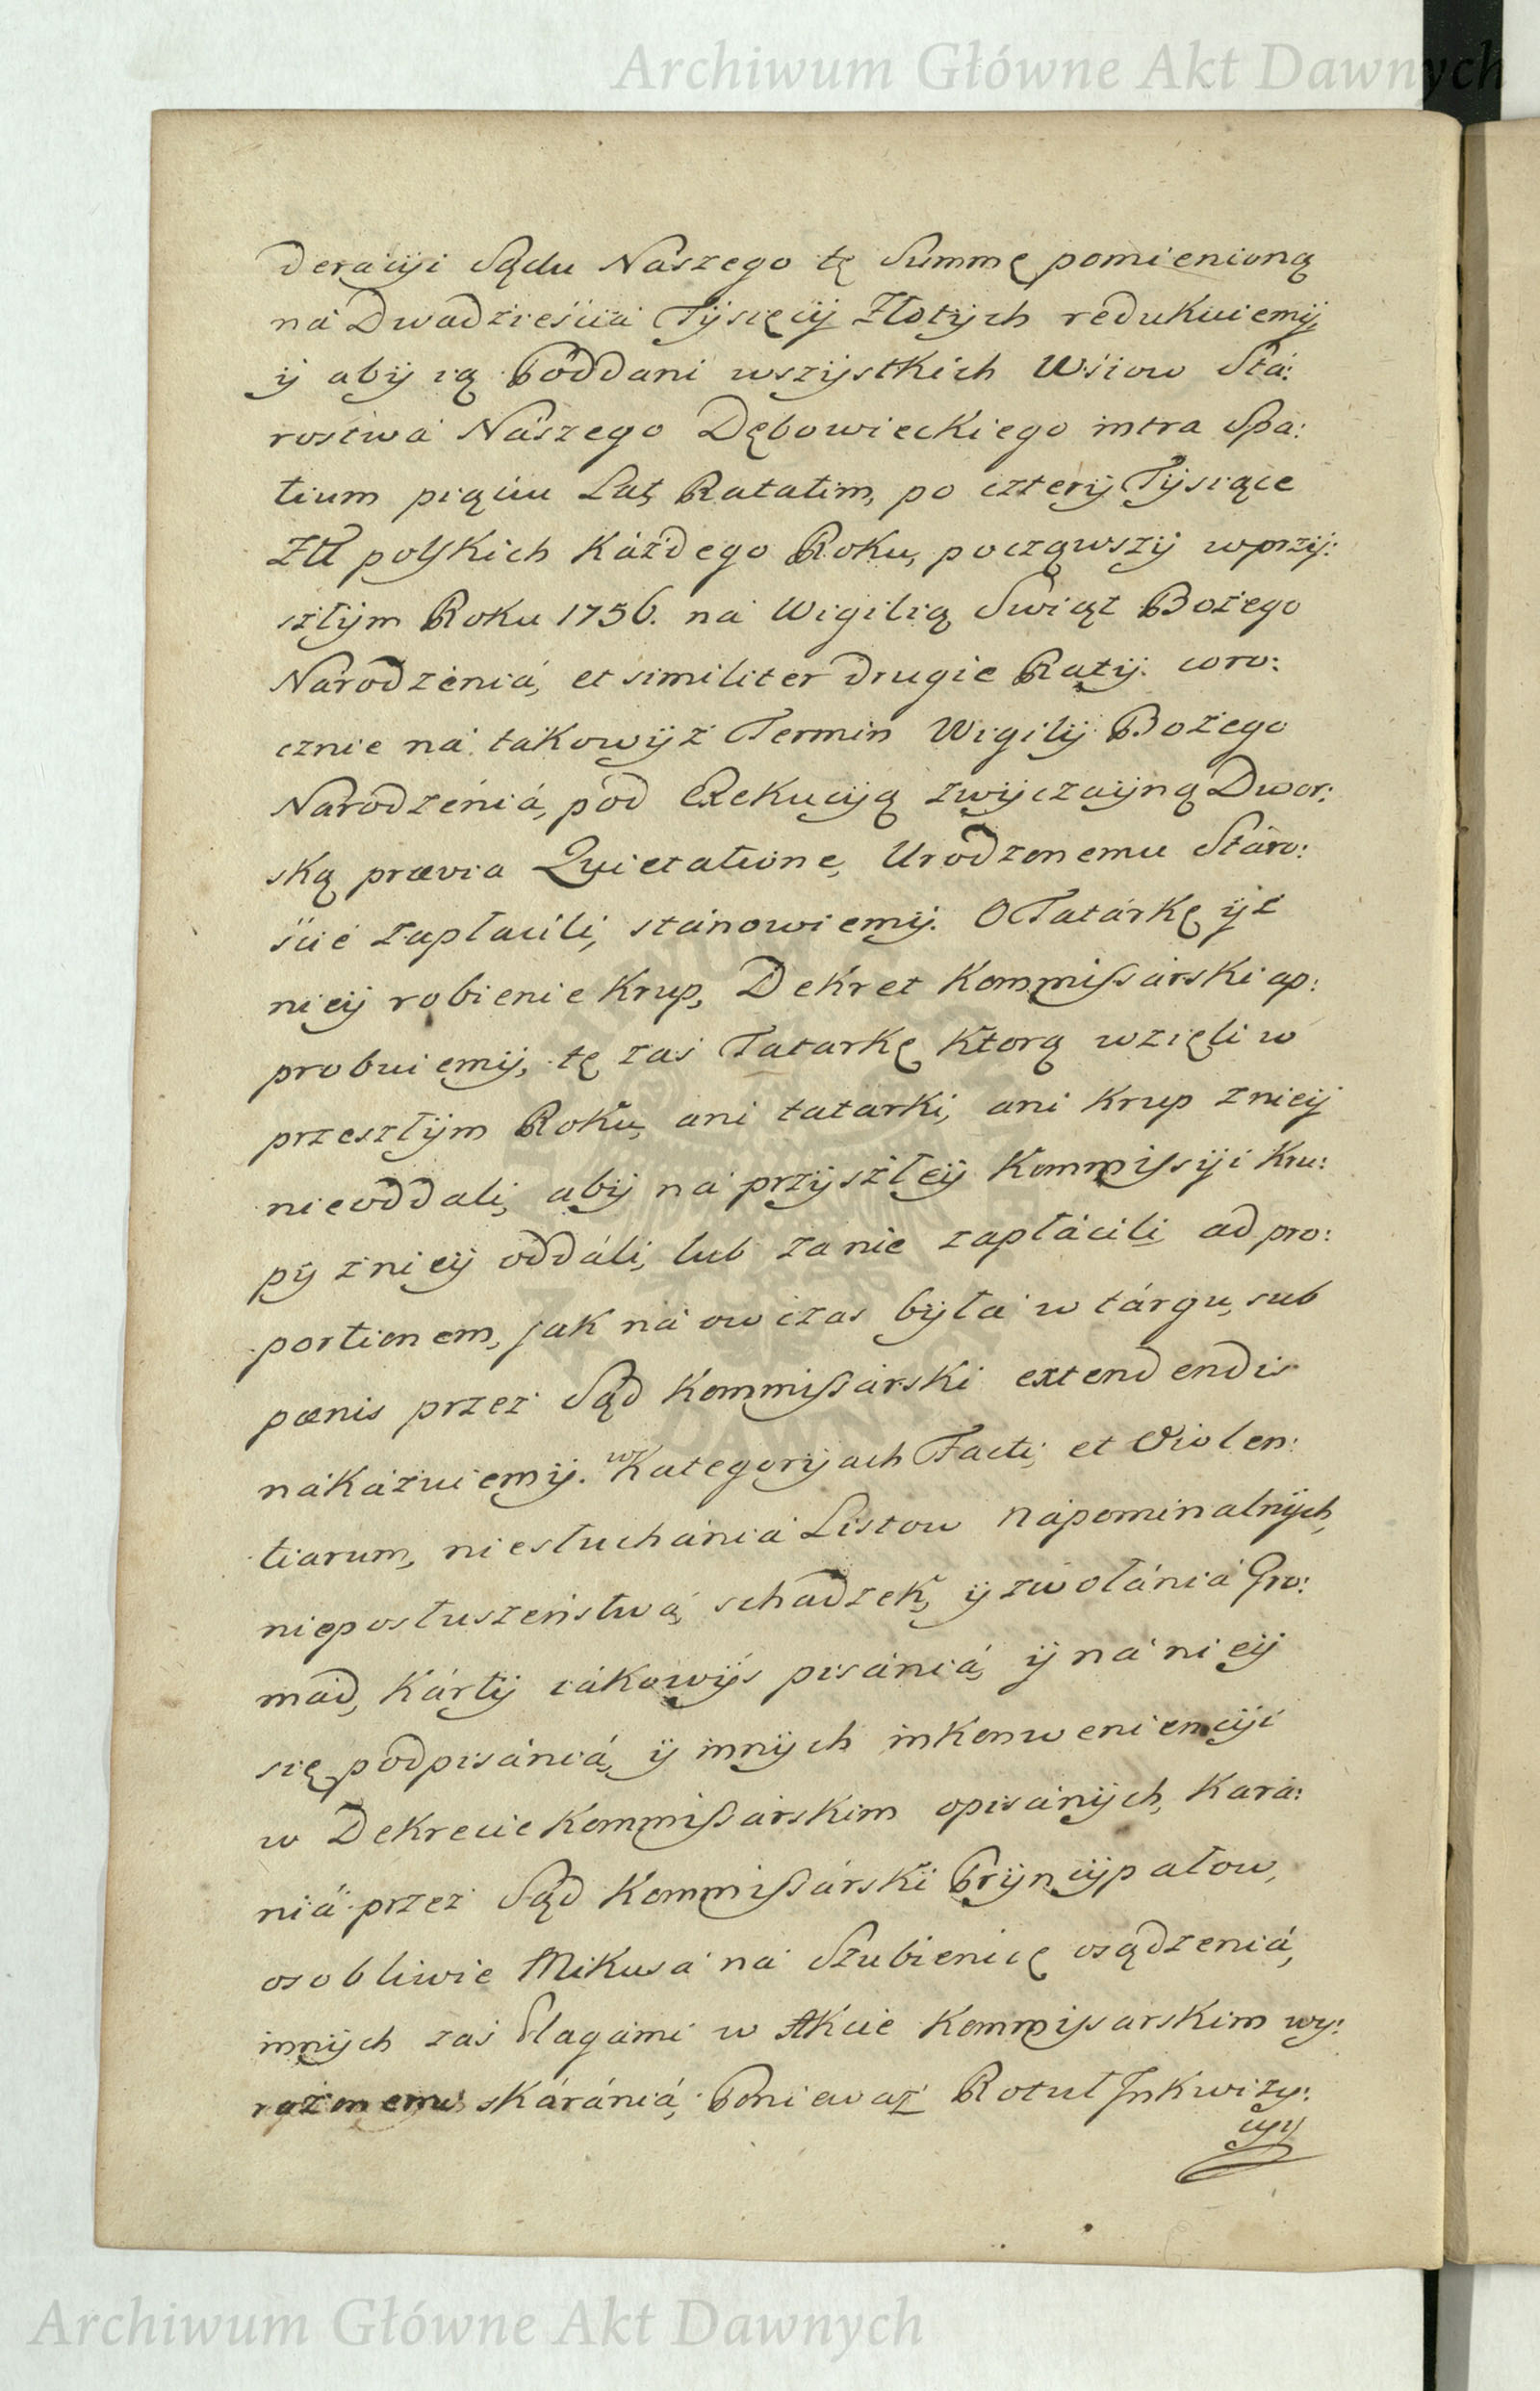 Archiwum Główne Akt Dawnych
deracyi Sądu Naszego tę Summę pomienioną
ná Dwadzieścia Tysięcy Złotych redukuiemy,
y aby ią Poddani wszystkich Wsiow Sta:
rostwa Naszego Dębowieckiego intra Spa:
tium piąciu Lat, Ratatim, po cztery Tysiące
Złł polskich káżdego Roku, począwszy w przy:
szłym Roku 1756. ná Wigilią Swiąt Bożego
Národzenia, et similiter drugie Raty. coro:
cznie ná tákowyż Termin Wigily Bożego
Národzeniá, pod Exekucyą zwyczayną Dwor:
ską prævia Quietatione, Urodzonemu Stáro:
ście zapłacili, stánowiemy. O Tatárkę yz
niey robienie Krup, Dekret Kommissárski ap:
probuiemy, tę zaś Tatarkę ktorą wzięli w
przeszłym Roku, ani tatárki, ani Krup zniey
nieoddali, aby ná przyszłey Kommissyi Kru:
py zniey oddáli, lub zanie zapłácili, ad pro:
portionem, jak ná ow czas była w tárgu, sub
pænis przez Sąd Kommissárski extendendis
nákázuiemy. w Kategoryach Facti, et Violen:
tiarum, niesłuchániá Listow nápominalnych,
nieposłuszeństwá, schadzek, y zwołániá Gro:
mád, Kárty iákowyś pisániá, y ná niey
się podpisániá, y innych inkonweniencyi
w Dekrecie Kommissárskim opisánych, Kará:
niá przez Sąd Kommissárski Pryncypałow,
osobliwie Mikusá ná Szubienicę osądzeniá,
innych zaś Plagámi w Akcie Kommissarskim wy:
rażonemu skárániá, Ponieważ Rotuł Inkwizy:
cyy
Archiwum Główne Akt Dawnych